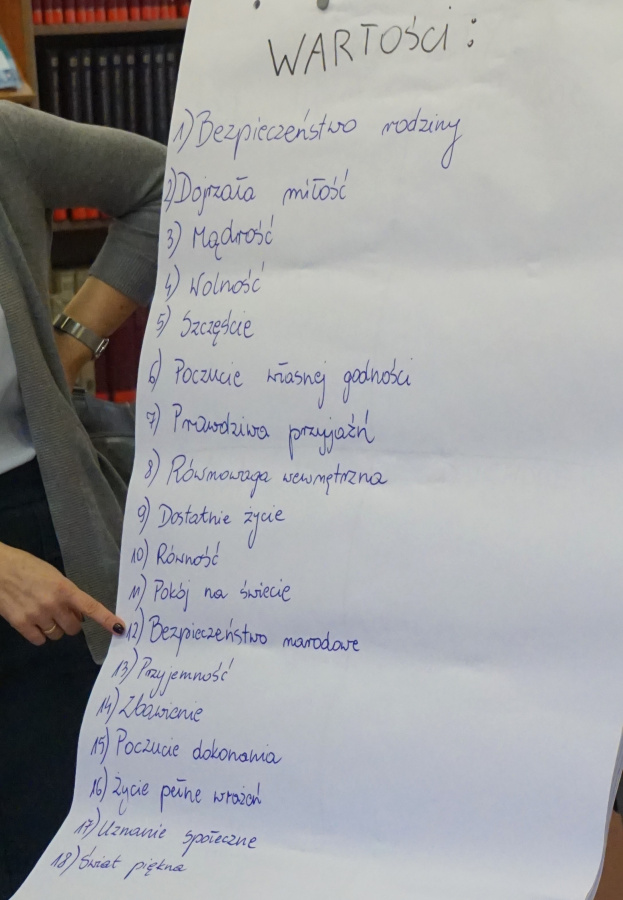 WARTOŚCI:
1) Bezpieczeństwo rodziny
2) Dojrzała miłość
3) Mądrość
4) Wolność
5) Szczęście
6) Poczucie własnej godności
7) Prawdziwa przyjaźń
8) Równowaga wewnętrzna
9) Dostatnie życie
10) Równość
11) Pokój na świecie
12) Bezpieczeństwo narodowe
13) Przyjemność
14) Zbawienie
15) Poczucie dokonania
16) Życie pełne wrażeń
17) Uznanie społeczne
18) Świat piękna